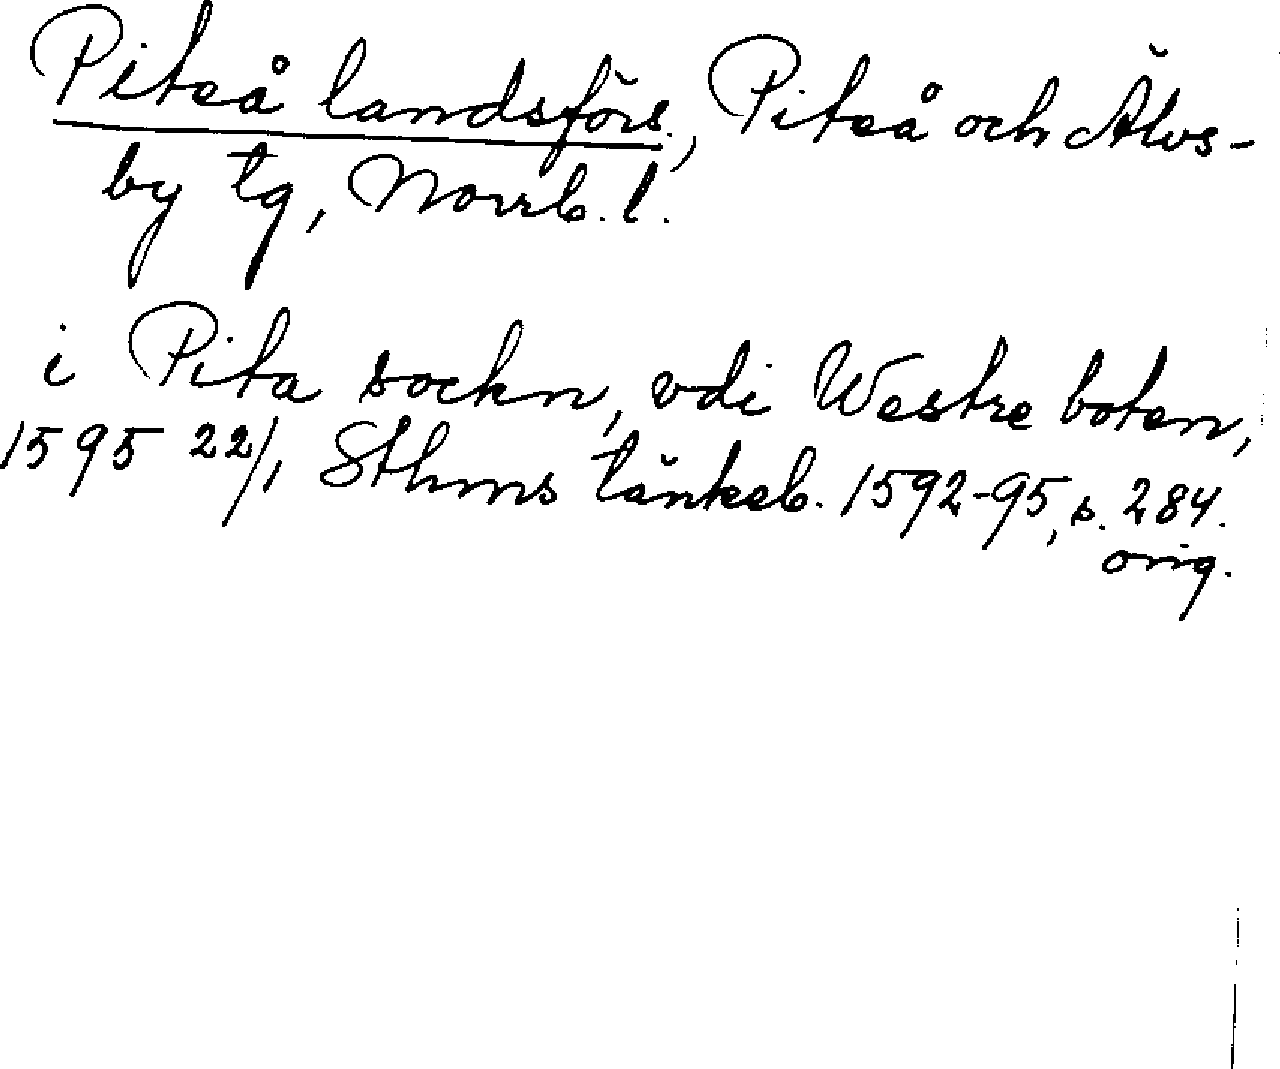 Piteå landsförs., Piteå och Älvs-
by tg, Norrb. l.
i Pita sockn, vdi Westre boten,
1595 22/1 Sthms tänkeb. 1592-95, s. 284.
orig.